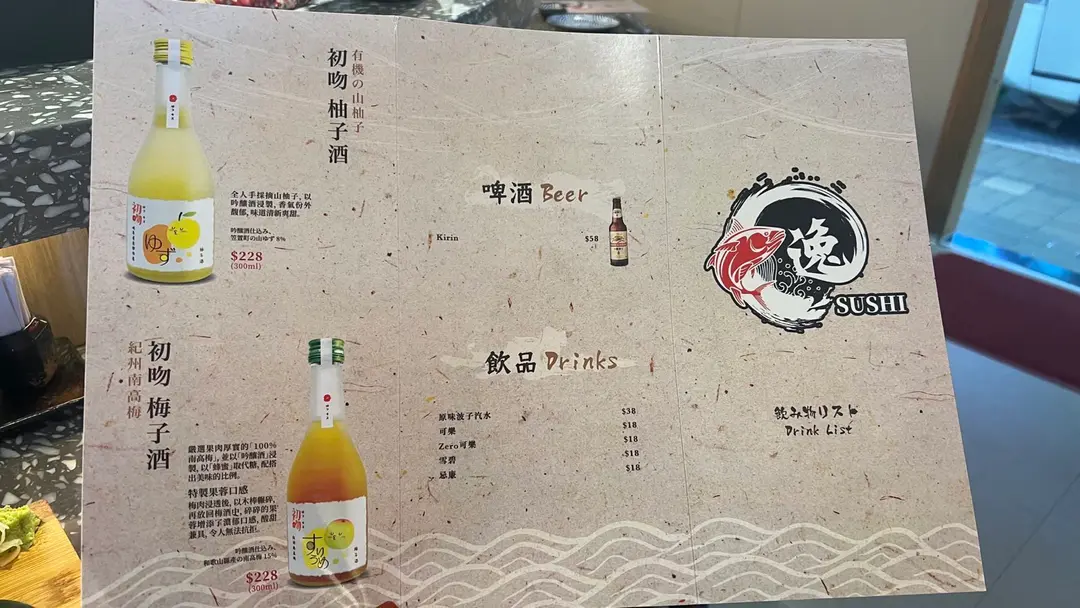 有機の山柚子
初吻 柚子酒
全人手採摘山柚子, 以
吟釀酒浸製, 香氣份外
馥郁, 味道清新爽甜。
吟釀酒仕込み、
笠置町の山ゆず 8%
$228
(300ml)
初吻
ゆず
柚子酒
初吻 梅子酒
紀州南高梅
嚴選果肉厚實的「100%
南高梅」, 並以「吟釀酒」浸
製, 以「蜂蜜」取代糖, 配搭
出美味的比例。
特製果蓉口感
梅肉浸透後, 以木棒輾碎,
再放回梅酒中, 碎碎的果
蓉增添了濃郁口感, 酸甜
兼具, 令人無法抗拒。
吟釀酒仕込み、
和歌山縣產の南高梅 15%
$228
(300ml)
初吻
すりうめ
梅子酒
啤酒 Beer
Kirin $58
飲品 Drinks
原味波子汽水 $38
可樂 $18
Zero可樂 $18
雪碧 $18
忌廉 $18
逸
SUSHI
飲み物リスト
Drink List